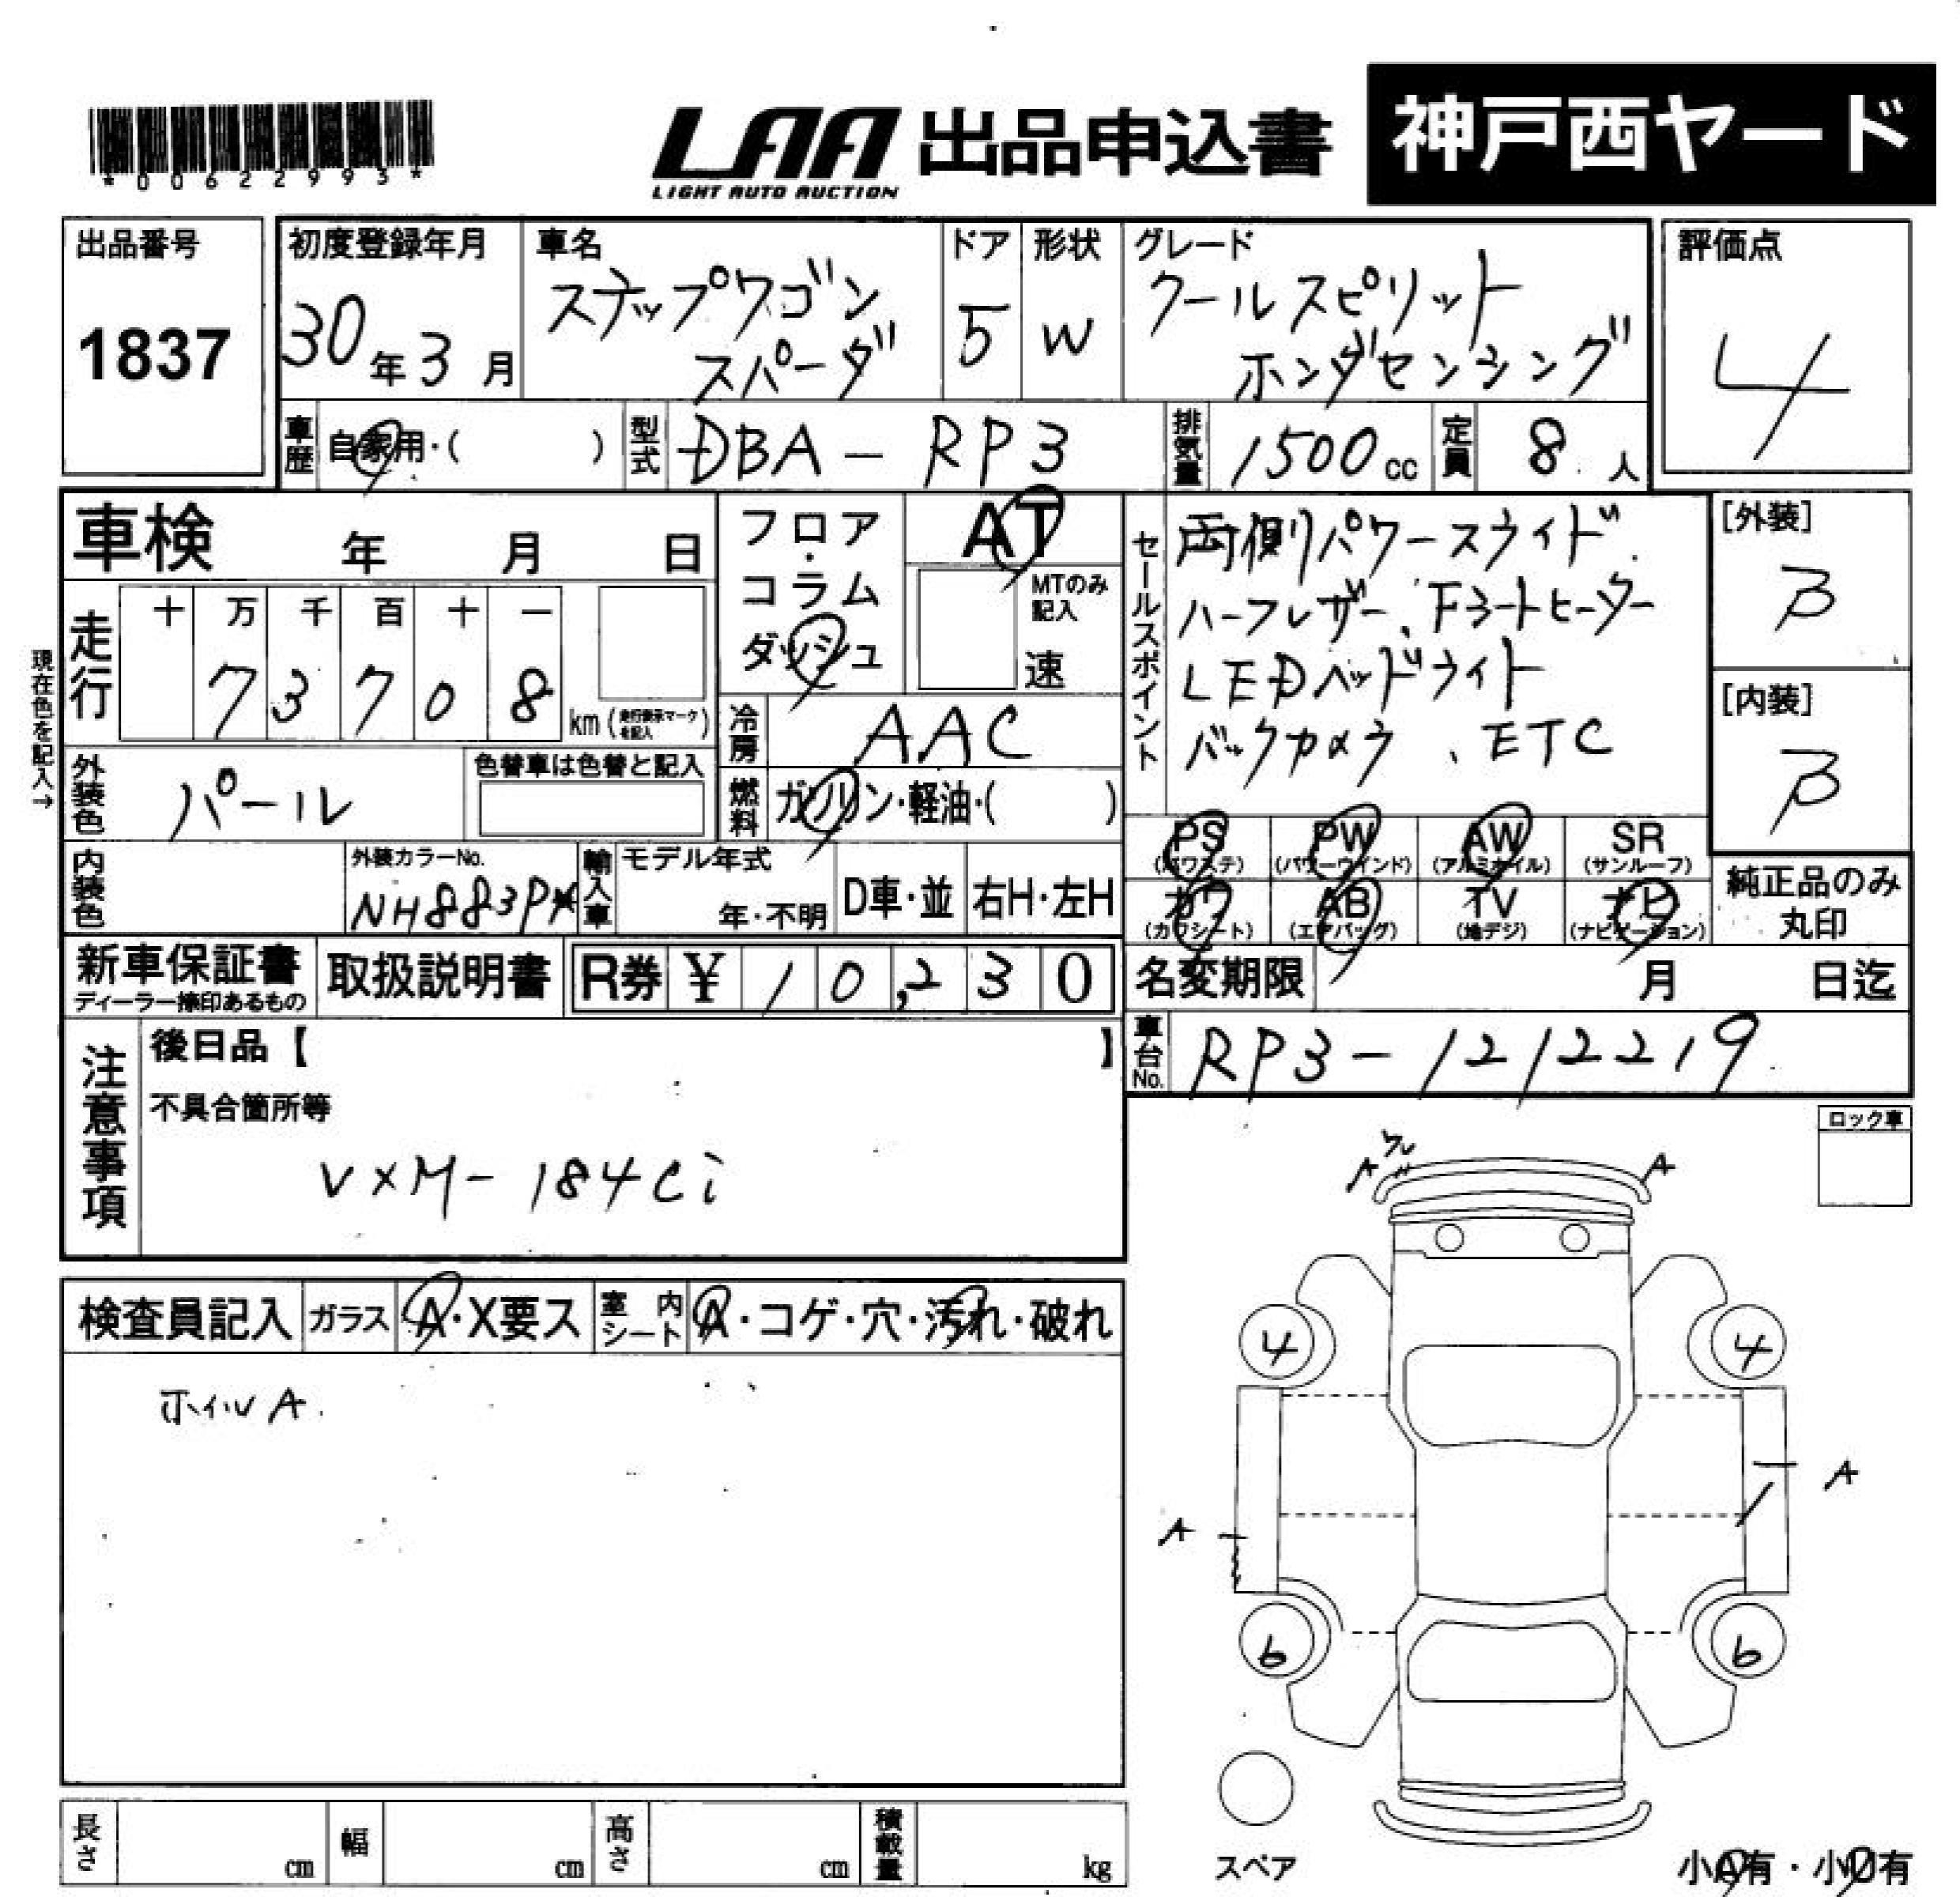 *00622993*
LAA 出品申込書
LIGHT AUTO AUCTION
神戸西ヤード
出品番号
1837
初度登録年月
30年3月
車名
ステップワゴン
スパーダ
ドア
5
形状
W
グレード
クールスピリット
ホンダセンシング
評価点
4
車歴
自家用・( )
型式
DBA-RP3
排気量
1500cc
定員
8人
車検 年 月 日
現在色を記入→
走行
十 万 千 百 十 一
7 3 7 0 8
km (走行表示マークを記入)
フロア・コラム
ダッシュ
AT
MTのみ
記入
速
冷房
AAC
燃料
ガソリン・軽油・( )
セールスポイント
両側パワースライド
ハーフレザー、Fシートヒーター
LEDヘッドライト
バックカメラ、ETC
[外装]
B
[内装]
B
外装色
パール
色替車は色替と記入
内装色
外装カラーNo.
NH883PX
輸入車
モデル年式
年・不明
D車・並
右H・左H
PS
(パワステ)
PW
(パワーウインド)
AW
(アルミホイル)
SR
(サンルーフ)
カワ
(カワシート)
AB
(エアバッグ)
TV
(地デジ)
ナビ
(ナビゲーション)
純正品のみ
丸印
新車保証書
ディーラー捺印あるもの
取扱説明書
R券 ¥ 10,230
名変期限 月 日迄
車台No.
RP3-1212219
注意事項
後日品【 】
不具合箇所等
VXM-184Ci
ロック車
検査員記入
ガラス
A・X要ス
室内シート
A・コゲ・穴・汚れ・破れ
ホイルA
A
A
4
4
A
A
6
6
スペア
小A有・小U有
長さ cm
幅 cm
高さ cm
積載量 kg